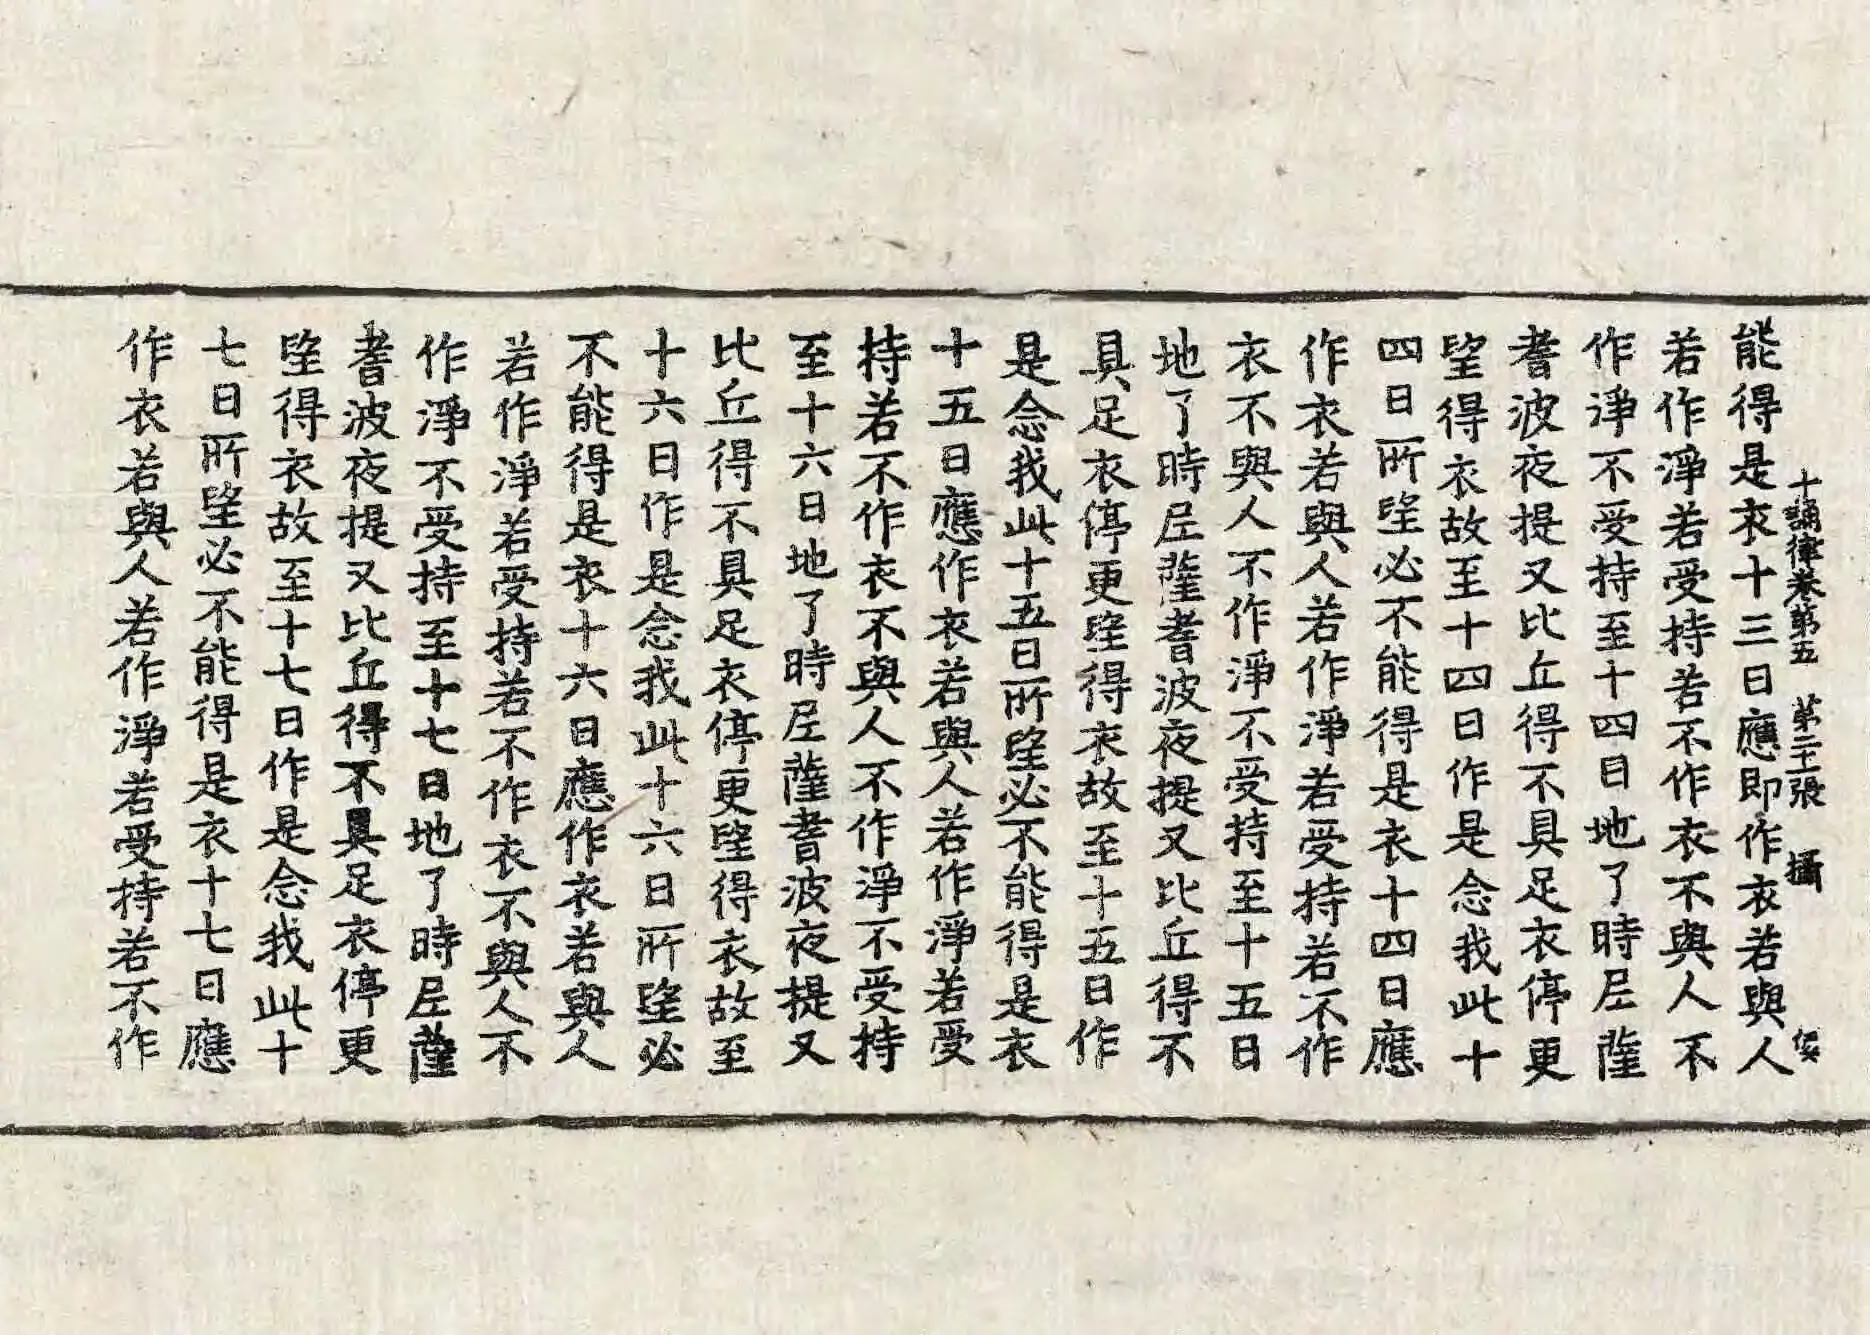 十誦律卷第五 攝
能得是衣十三日應即作衣若與人
若作淨若受持若不作衣不與人不
作淨不受持至十四日地了時尼薩
耆波夜提又比丘得不具足衣停更
望得衣故至十四日作是念我此十
四日所望必不能得是衣十四日應
作衣若與人若作淨若受持若不作
衣不與人不作淨不受持至十五日
地了時尼薩耆波夜提又比丘得不
具足衣停更望得衣故至十五日作
是念我此十五日所望必不能得是衣
十五日應作衣若與人若作淨若受
持若不作衣不與人不作淨不受持
至十六日地了時尼薩耆波夜提又
比丘得不具足衣停更望得衣故至
十六日作是念我此十六日所望必
不能得是衣十六日應作衣若與人
若作淨若受持若不作衣不與人不
作淨不受持至十七日地了時尼薩
耆波夜提又比丘得不具足衣停更
望得衣故至十七日作是念我此十
七日所望必不能得是衣十七日應
作衣若與人若作淨若受持若不作